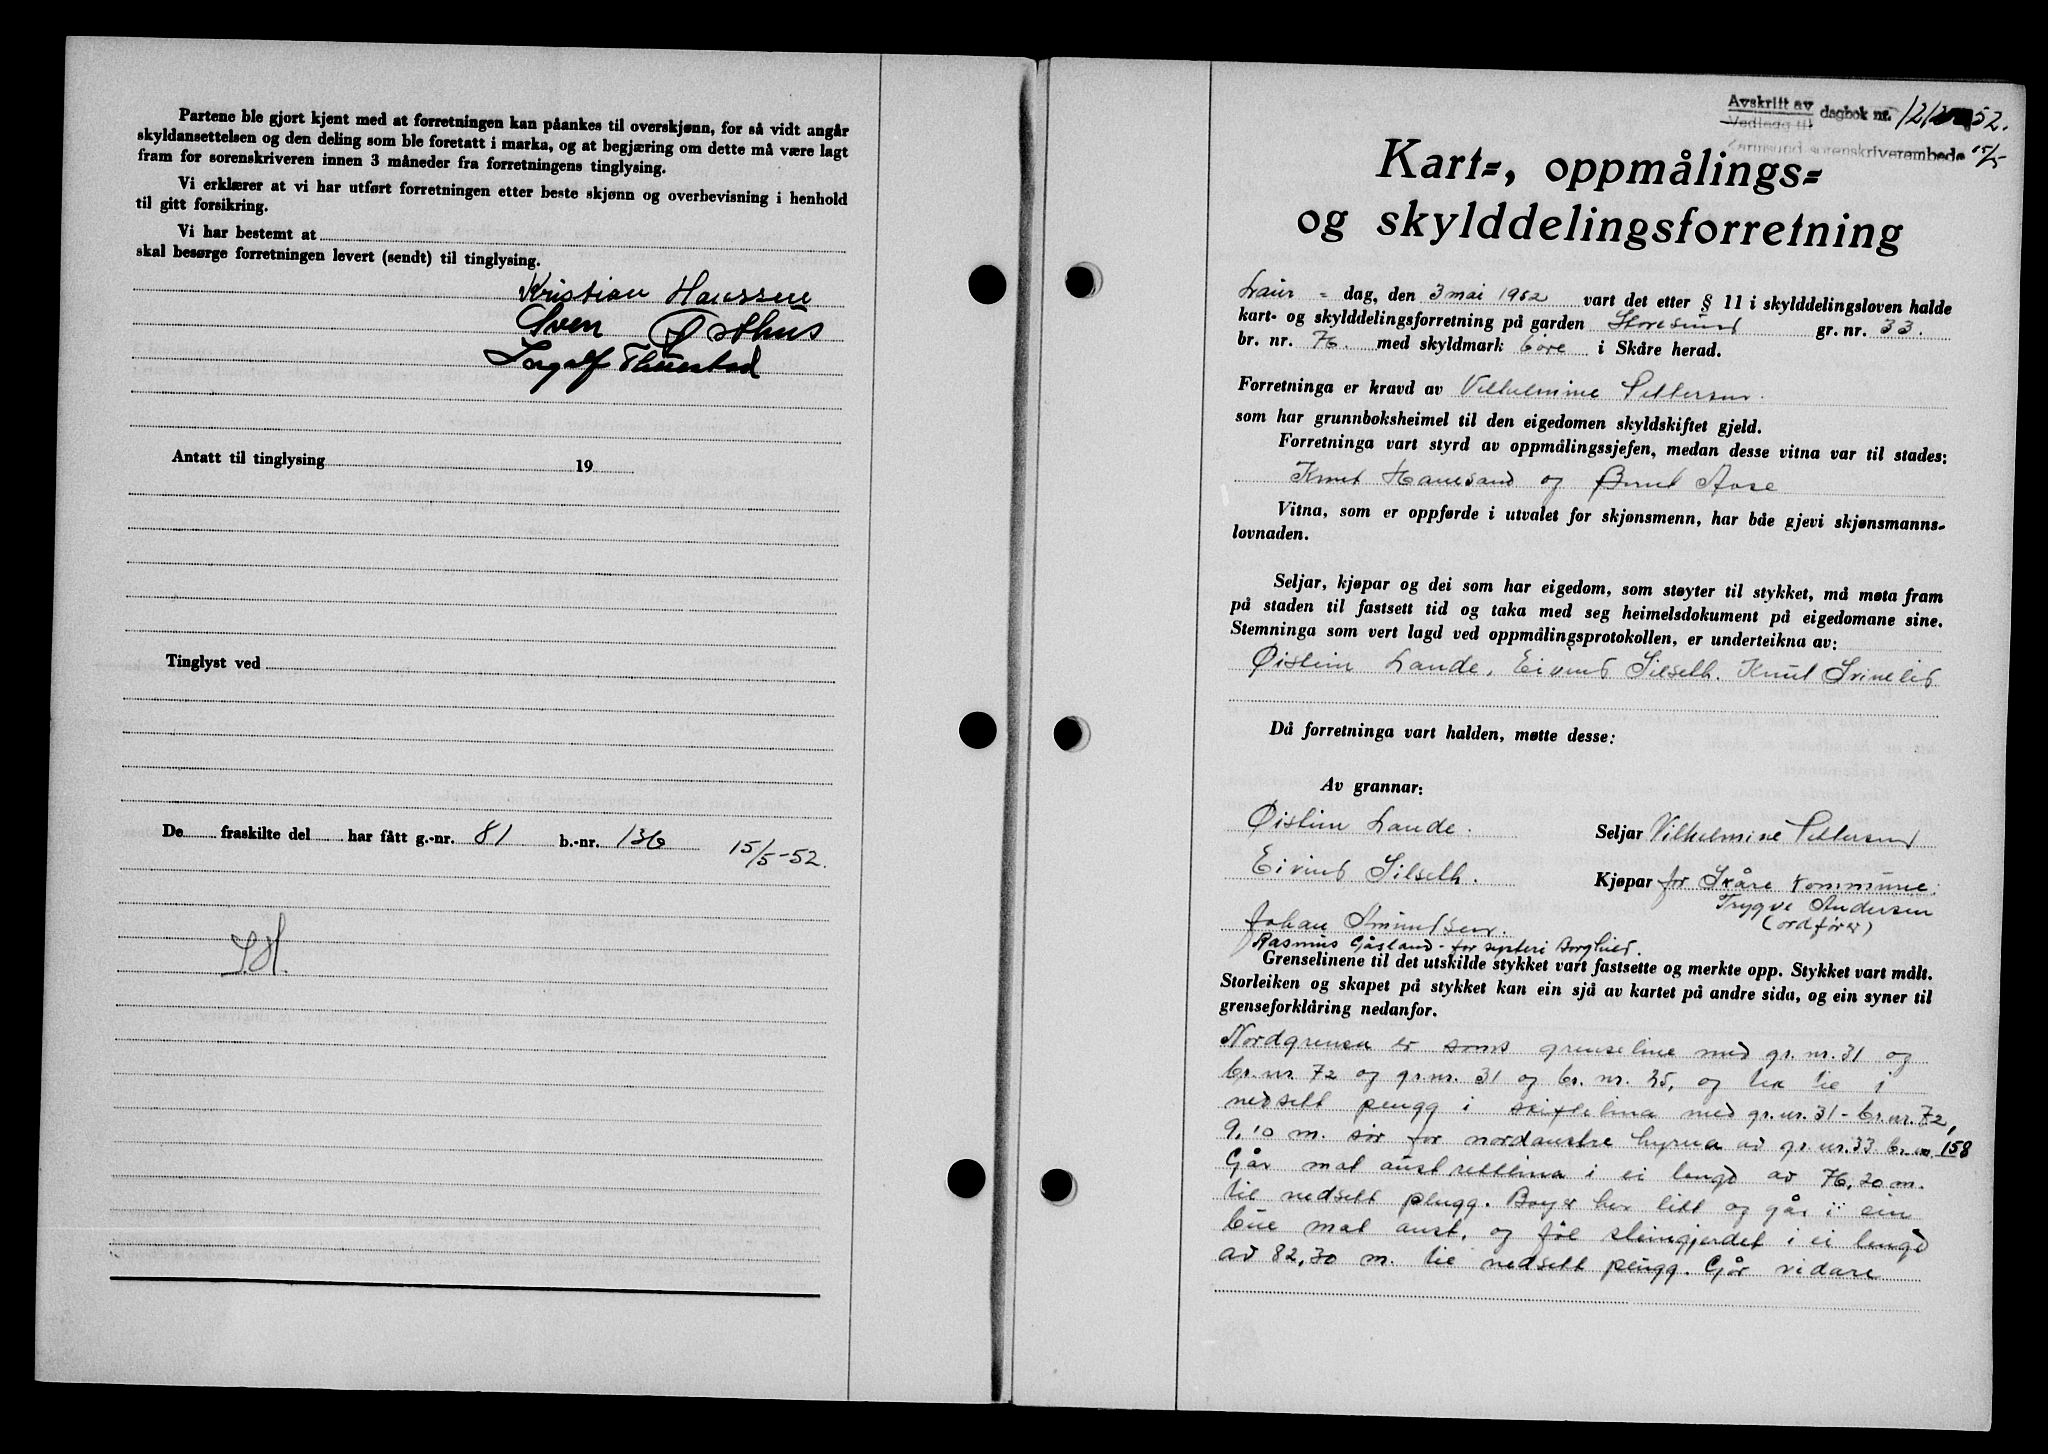 Partene ble gjort kjent med at forretningen kan påankes til overskjønn, for så vidt angår
skyldansettelsen og den deling som ble foretatt i marka, og at begjæring om dette må være lagt
fram for sorenskriveren innen 3 måneder fra forretningens tinglysing.
Vi erklærer at vi har utført forretningen etter beste skjønn og overbevisning i henhold
til gitt forsikring.
Vi har bestemt at
skal besørge forretningen levert (sendt) til tinglysing.
Kristian Haussen
Sven Østhus
Ingolf Thuestad
Antatt til tinglysing 19
Tinglyst ved
De fraskilte del har fått g.-nr. 81 b.-nr. 136 15/5-52.
S.H.
Avskrift av
Vedlegg til
dagbok nr. 52.
Karmsund sorenskriverembede 15/5
Kart-, oppmålings-
og skylddelingsforretning
Laur-dag, den 3 mai 1952 vart det etter § 11 i skylddelingsloven halde
kart- og skylddelingsforretning på garden Storesund gr. nr. 33.
br. nr. 76. med skyldmark 6 øre i Skåre herad.
Forretninga er kravd av Vilhelmine Pettersen.
som har grunnboksheimel til den eigedomen skyldskiftet gjeld.
Forretninga vart styrd av oppmålingssjefen, medan desse vitna var til stades:
Knut Hanesand og Berent Aase
Vitna, som er oppførde i utvalet for skjønsmenn, har båe gjevi skjønsmanns-
lovnaden.
Seljar, kjøpar og dei som har eigedom, som støyter til stykket, må møta fram
på staden til fastsett tid og taka med seg heimelsdokument på eigedomane sine.
Stemninga som vert lagd ved oppmålingsprotokollen, er underteikna av:
Øistein Lande, Eivind Silseth. Knut Svinelid
Då forretninga vart halden, møtte desse:
Av grannar:
Øistein Lande.
Seljar Vilhelmine Pettersen
Eivind Silseth.
Kjøpar for Skåre kommune:
Trygve Andersen
(ordfører)
Johan Amundsen.
Rasmus Gåsland - for systeri Borghild.
Grenselinene til det utskilde stykket vart fastsette og merkte opp. Stykket vart målt.
Storleiken og skapet på stykket kan ein sjå av kartet på andre sida, og ein syner til
grenseforklåring nedanfor.
Nordgrensa er sams grenseline med gr. nr. 31 og
br. nr. 72 og gr. nr. 31 og br. nr. 25, og tek til i
nedsett pengg i skiftelina med gr. nr. 31 - br. nr. 72,
9,10 m. sør for nordaustre hyrna av gr. nr. 33 br. nr. 158
Går mot aust rettlina i ei lengd av 76,20 m.
til nedsett plugg. Bøyer her litt og går i ein
bue mot aust, og føl steingjerdet i ei lengd
av 82,30 m. til nedsett plugg. Går vidare